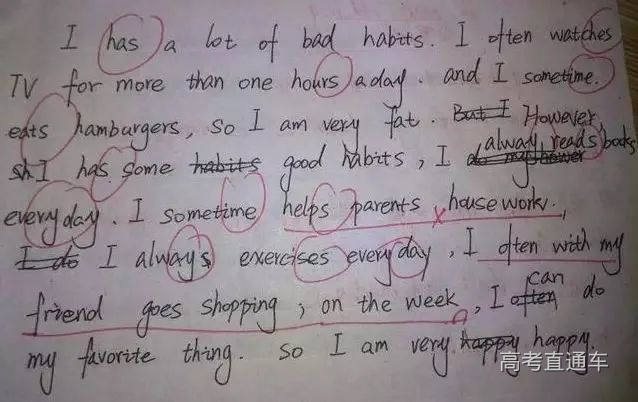 I has a lot of bad habits. I often watches
TV for more than one hours a day. and I sometime.
eats hamburgers, so I am very fat. But I However
sh I has some habits good habits, I do my hower alway reads books
everyday. I sometime helps parents housework.,
I do I always exercises everyday, I often with my
friend goes shopping, on the week, I often can do
my favorite thing. so I am very happy happy.
高考直通车